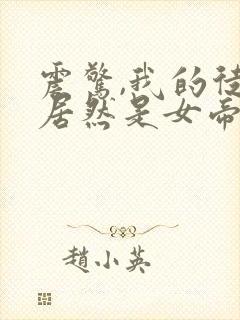 震驚,我的徒
居然是女帝
趙小英